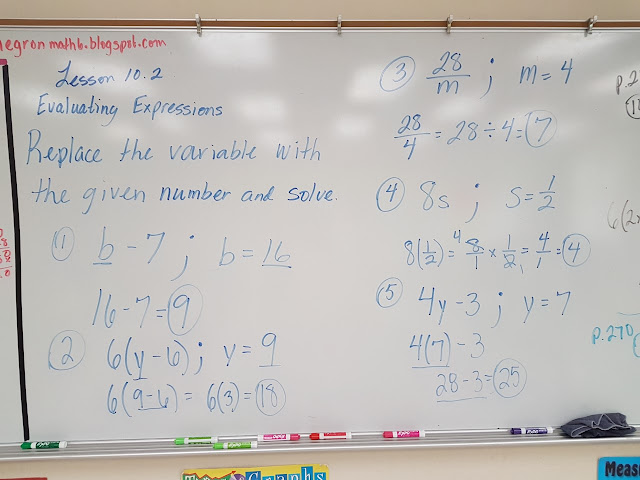 negron math6.blogspot.com
Lesson 10.2
Evaluating Expressions
Replace the variable with
the given number and solve.
① b - 7 ; b = 16
16 - 7 = 9
② 6(y - 6) ; y = 9
6(9 - 6) = 6(3) = 18
③ 28/m ; m = 4
28/4 = 28 ÷ 4 = 7
④ 8s ; s = 1/2
8(1/2) = ⁴8/1 × 1/2₁ = 4/1 = 4
⑤ 4y - 3 ; y = 7
4(7) - 3
28 - 3 = 25
p.2
6(2
p.270
Graphs
Meas